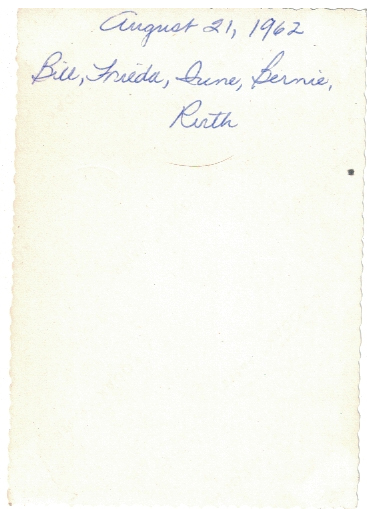 August 21, 1962
Bill, Frieda, June, Bernie,
Ruth